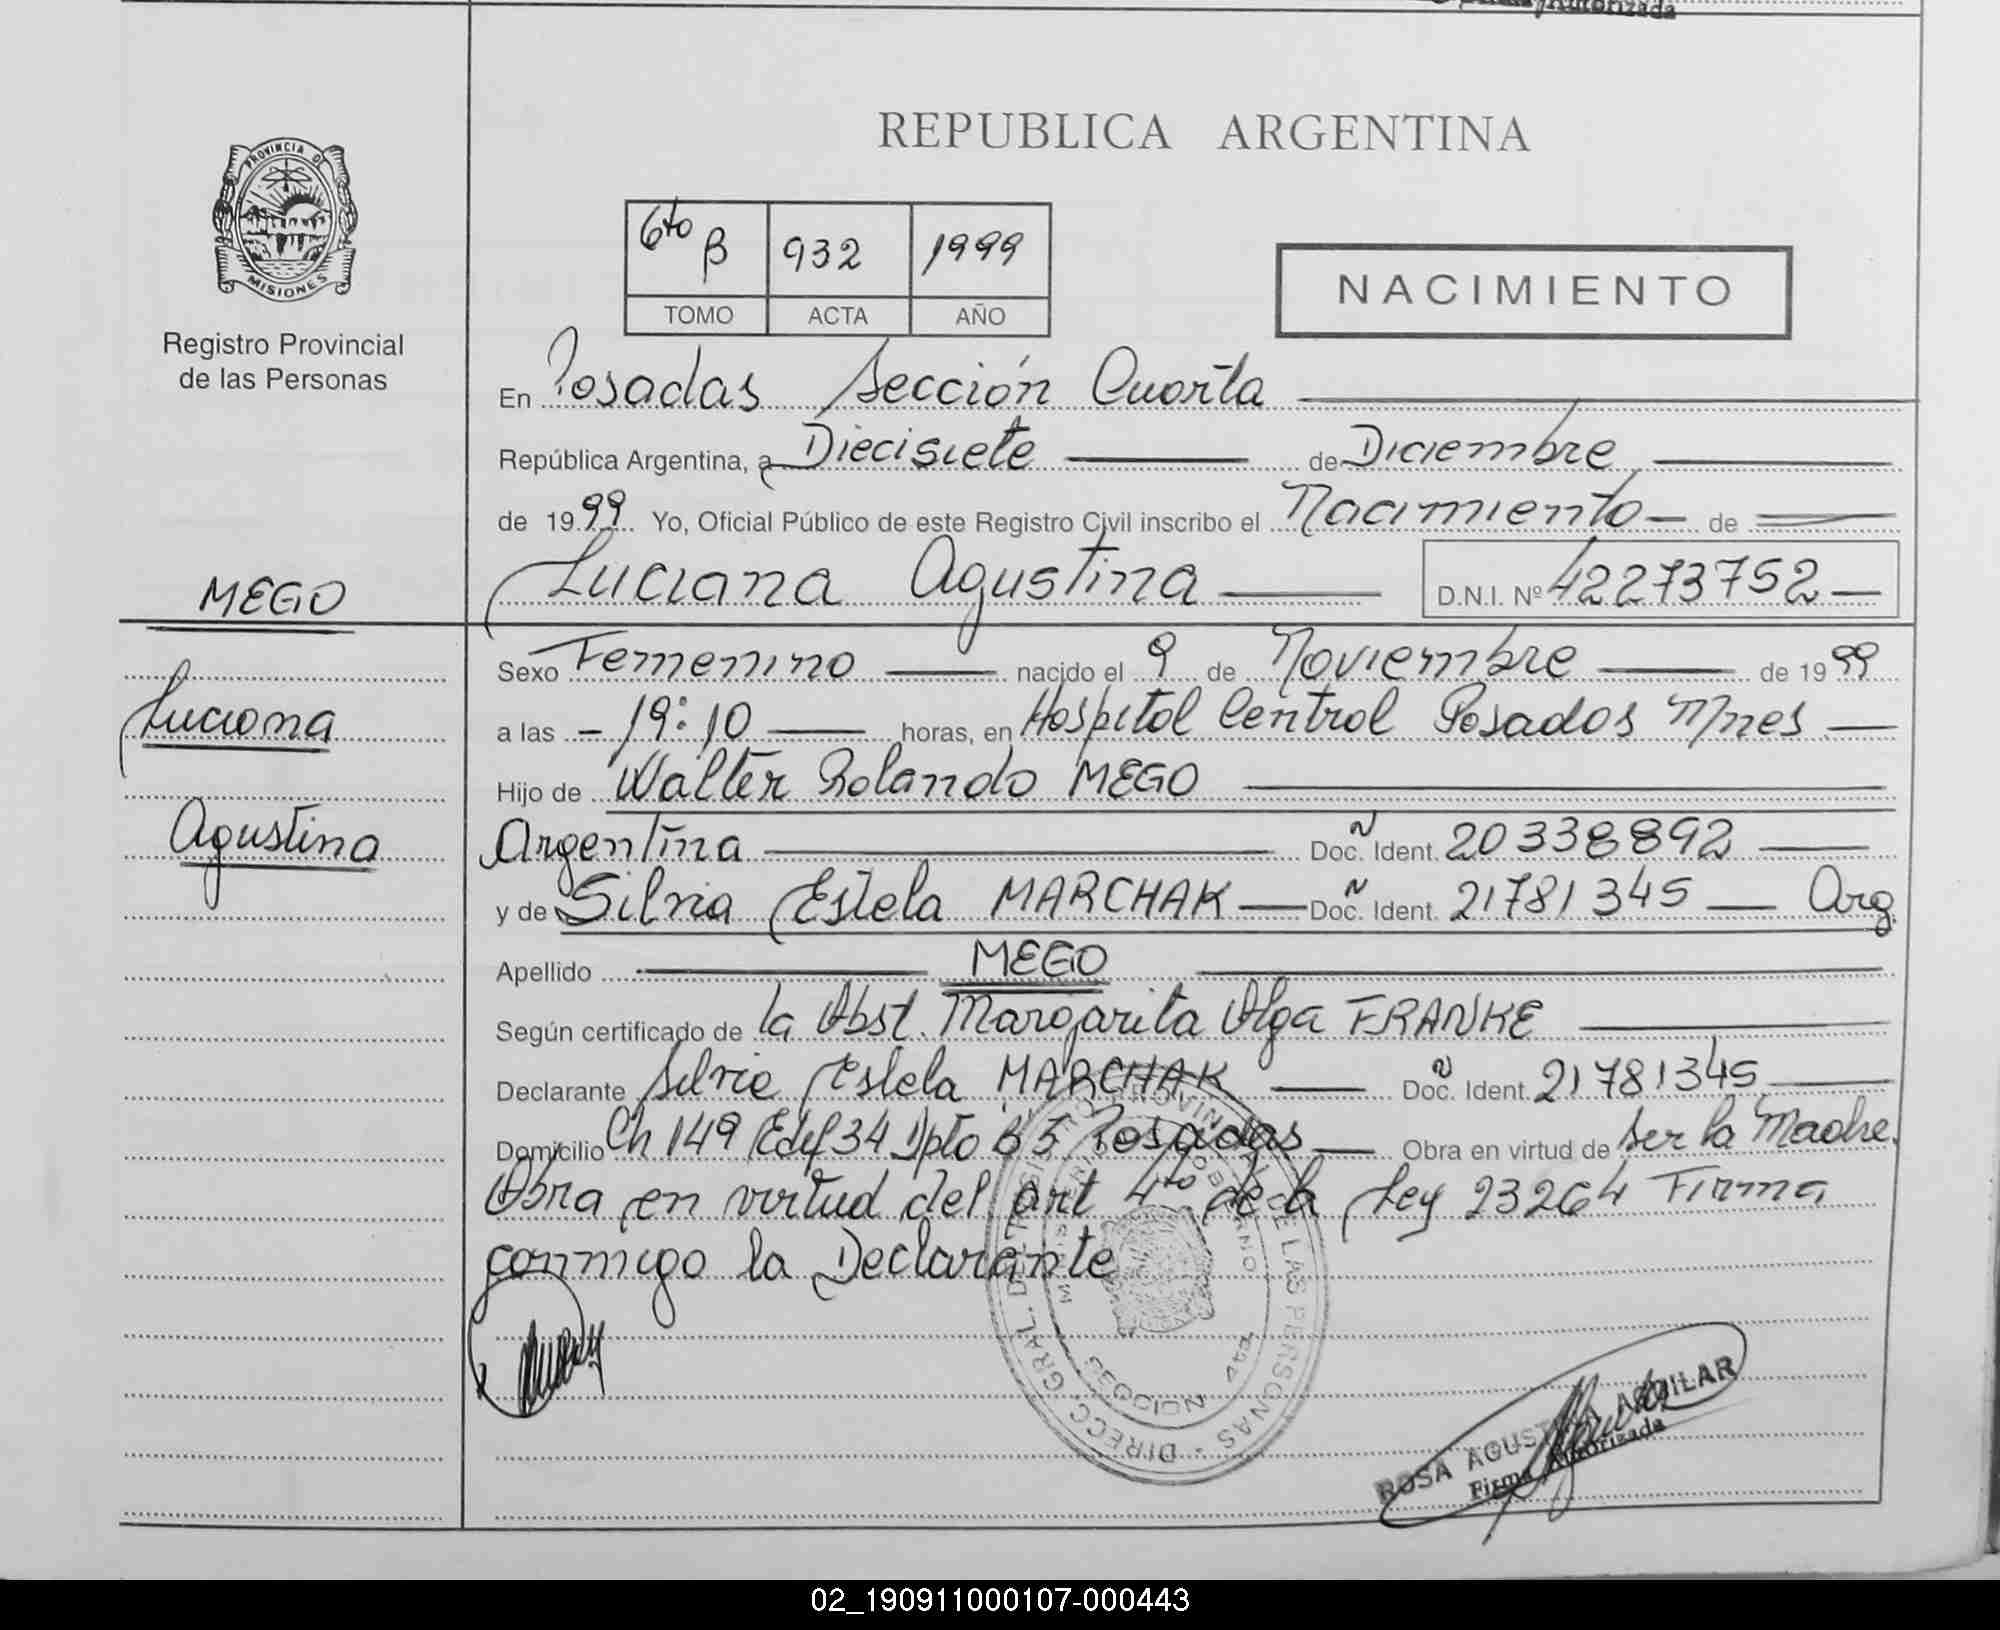 Firma Autorizada
REPUBLICA ARGENTINA
PROVINCIA DE
MISIONES
Registro Provincial
de las Personas
6to B 932 1999
TOMO ACTA AÑO
NACIMIENTO
En Posadas Sección Cuarta
República Argentina, a Diecisiete de Diciembre
de 1999 Yo, Oficial Público de este Registro Civil inscribo el Nacimiento de
Luciana Agustina D.N.I. Nº 42273752
MEGO
Luciana
Agustina
Sexo Femenino nacido el 9 de Noviembre de 1999
a las 19:10 horas, en Hospital Central Posadas Mnes
Hijo de Walter Rolando MEGO
Argentina Doc. Ident. 20338892
y de Silvia Estela MARCHAK Doc. Ident. 21781345 Arg.
Apellido MEGO
Según certificado de la Obst. Margarita Olga FRANKE
Declarante Silvia Estela MARCHAK Doc. Ident. 21781345
Domicilio Ch 149 Edif 34 Dpto B 5 Posadas Obra en virtud de ser la Madre.
Obra en virtud del art 4to de la Ley 23264 Firma
conmigo la Declarante
DIRECC. GRAL. DEL REGISTRO PROVINCIAL DE LAS PERSONAS
MINISTERIO GOBIERNO
ROSA AGUSTINA AGUILAR
Firma Autorizada
02_190911000107-000443